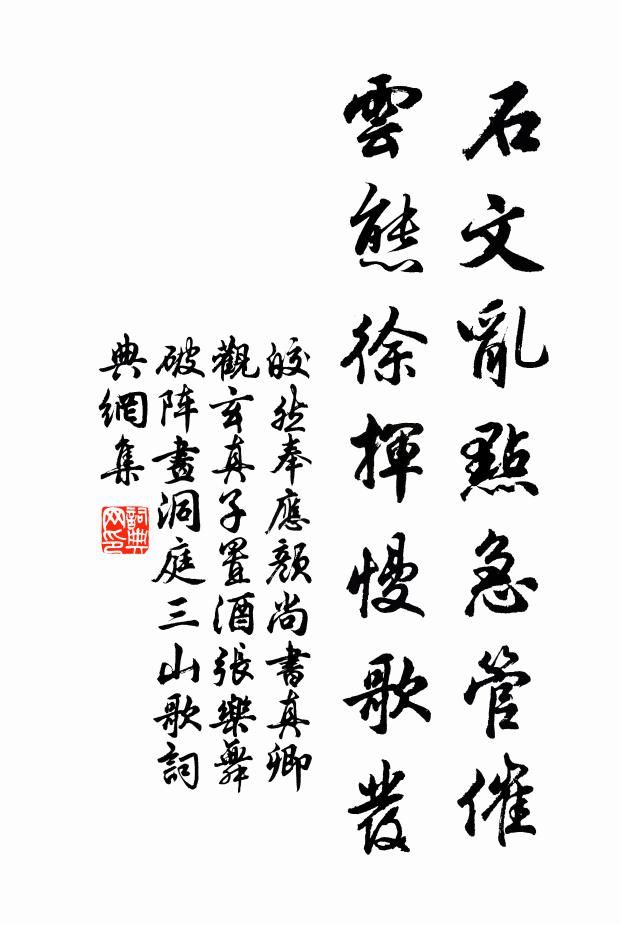 石文亂點急管催
雲態徐揮慢歌發
皎然奉應顏尚書真卿
觀玄真子置酒張樂舞
破阵畫洞庭三山歌詞
典網集
詞典
网印